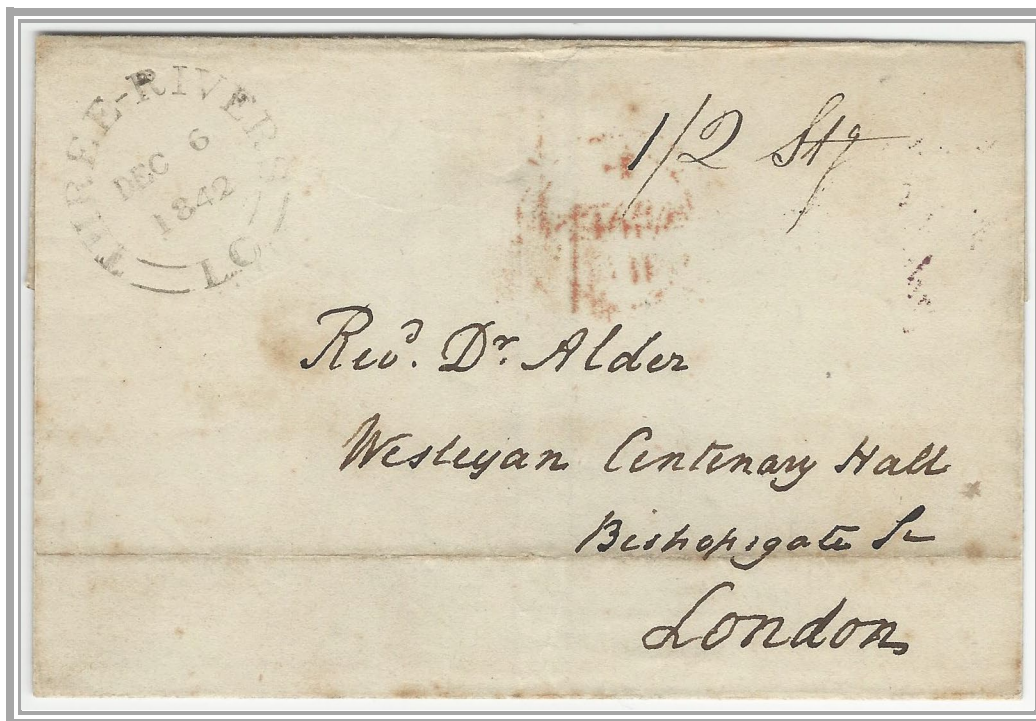 THREE-RIVERS
DEC 6
1842
L.C.
1/2 Stg
Revd. Dr. Alder
Wesleyan Centenary Hall
Bishopsgate St
London